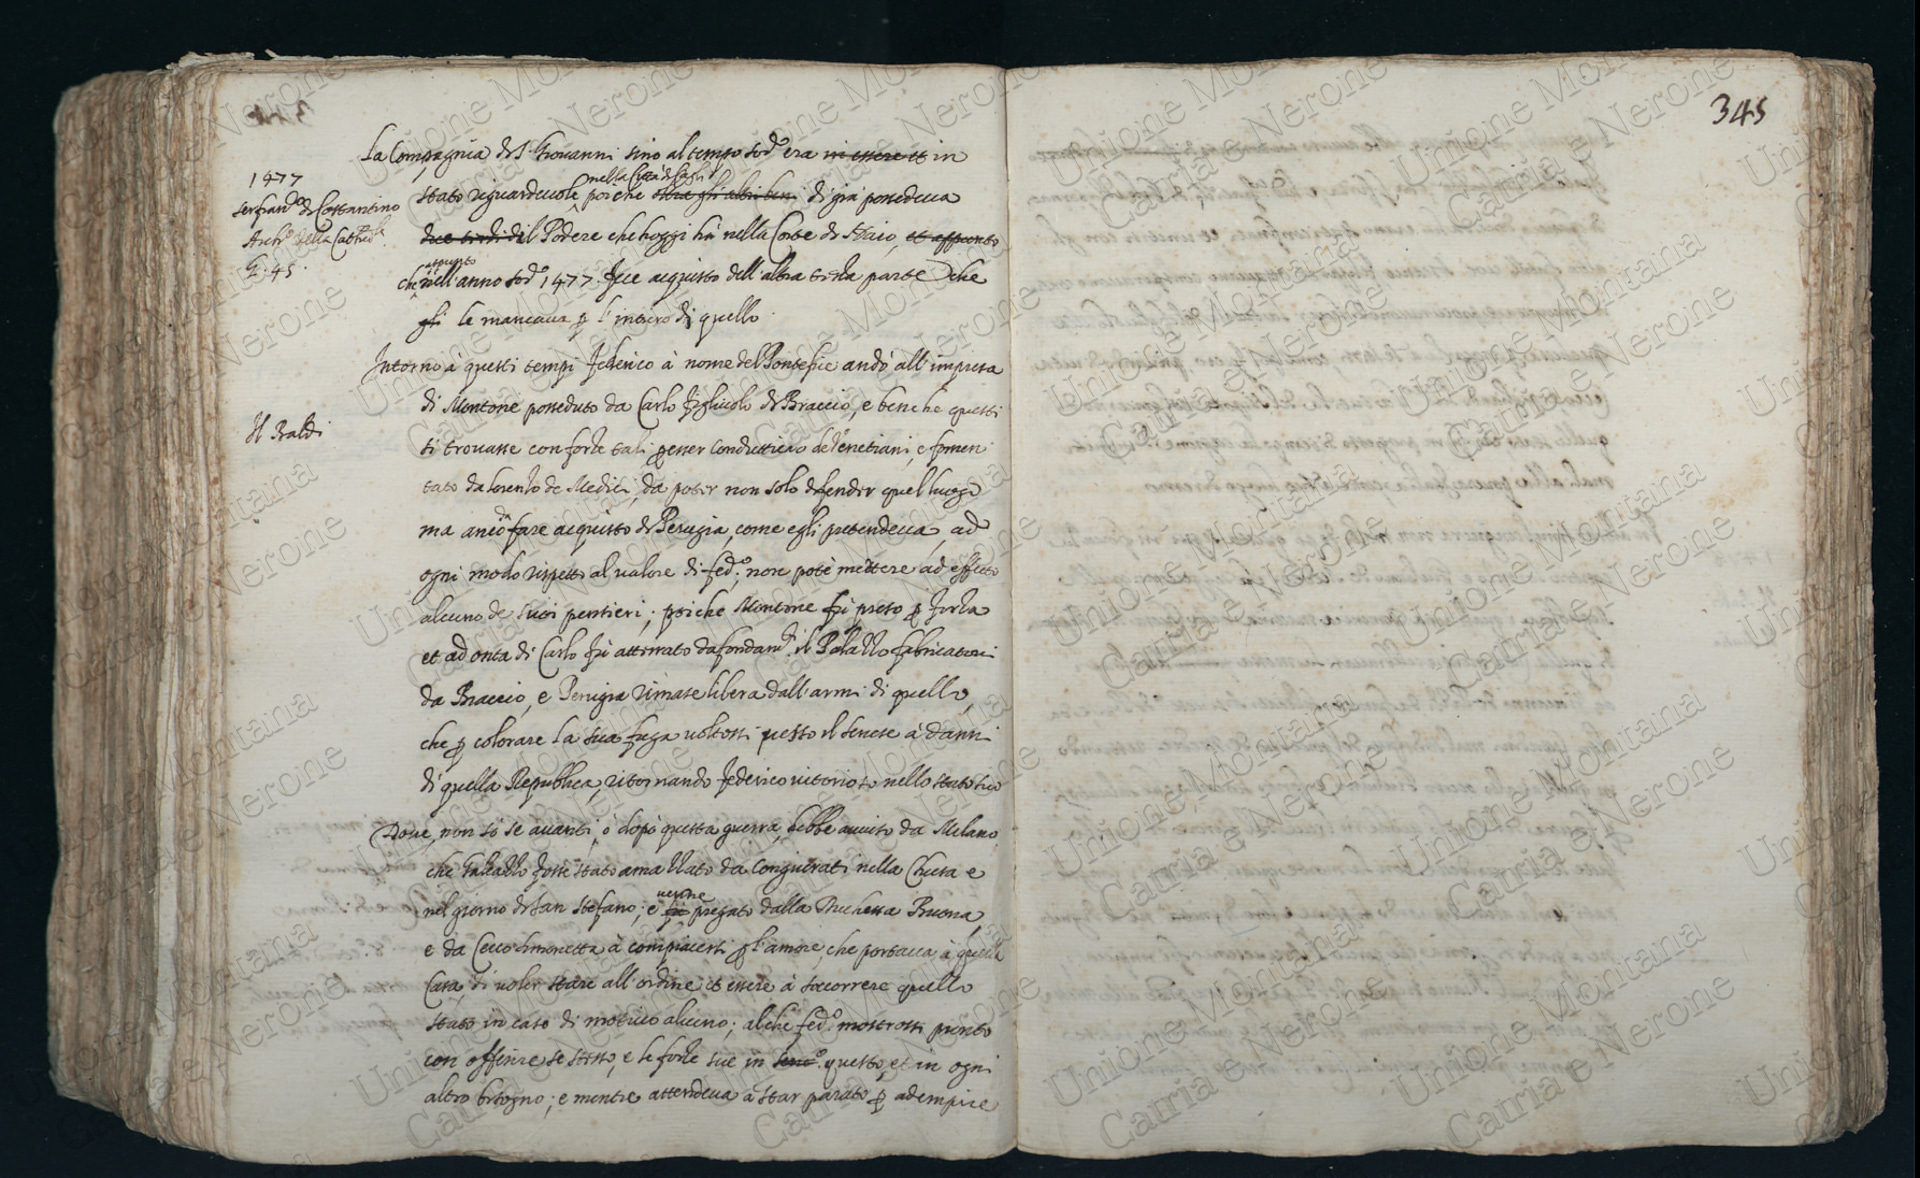 345
1477
Ser Franco di Costantino
Archo della Cathedle
C: 45.
Il Baldi
La Compagnia di S. Giovanni sino al tempo sodo era in essere et in
stato riguardevole nella Città di Cagli poiche oltre gli altri beni di già possedeva
due terzi del Podere che hoggi hà nella Corte di Naio, et appunto
che appunto nell'anno sodo 1477. fece acquisto dell'altra terza parte che
gli le mancava p l'intiero di quello.
Intorno à questi tempi Federico à nome del Pontefice andò all'impresa
di Montone posseduto da Carlo figliuolo di Braccio, e benche questi
si trovasse con forze tali, p esser condottiero de Venetiani, e fomen
tato da Lorenzo de Medici, da poter non solo defender quel luogo
ma anco da fare acquisto di Perugia, come egli pretendeva, ad
ogni modo rispetto al valore di Fedo: non potè mettere ad effetto
alcuno de suoi pensieri; poiche Montone fù preso p forza
et ad onta di Carlo fù atterrato da fondamti il Palazzo fabricatovi
da Braccio, e Perugia rimase libera dall'armi di quello,
che p colorare la sua fuga voltossi verso il Senese à danni
di quella Republica, ritornando Federico vitorioso nello stato suo
Dove, non sò se avanti, ò dopò questa guerra, hebbe aviso da Milano
che Galeazzo fosse stato amazzato da Congiurati nella Chiesa e
nel giorno di San Stefano; e fù venne pregato dalla Duchessa Buona,
e da Cecco Simonetta à compiacersi p l'amore, che portava à quella
Casa, di voler stare all'ordine et essere à soccorrere quello
stato in caso di motivo alcuno; al che Fedo: mostrossi pronto
con offerire se stesso, e le forze sue in questo, et in ogni
altro bisogno; e mentre attendeva a star parato p adempire
Unione Montana
Catria e Nerone